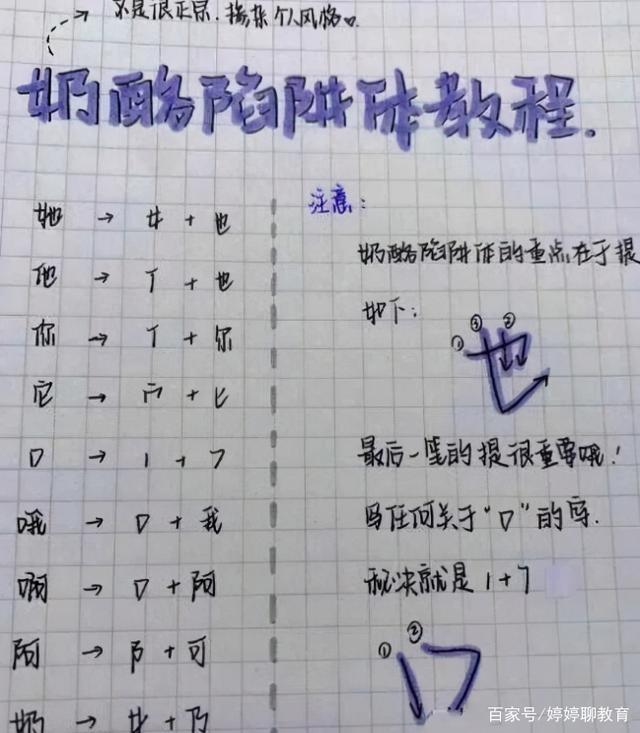 不是很正宗,掺杂个人风格。
奶酪陷阱体教程.
她 → 女 + 也
他 → 亻 + 也
你 → 亻 + 尔
它 → 宀 + 匕
口 → 1 + 7
哦 → 口 + 我
啊 → 口 + 阿
阿 → 阝 + 可
奶 → 女 + 乃
注意:
奶酪陷阱体的重点在于提
如下:
① ③ ②
也
最后一笔的提很重要哦!
写任何关于“口”的字.
秘诀就是1+7
① ②
口
百家号/婷婷聊教育